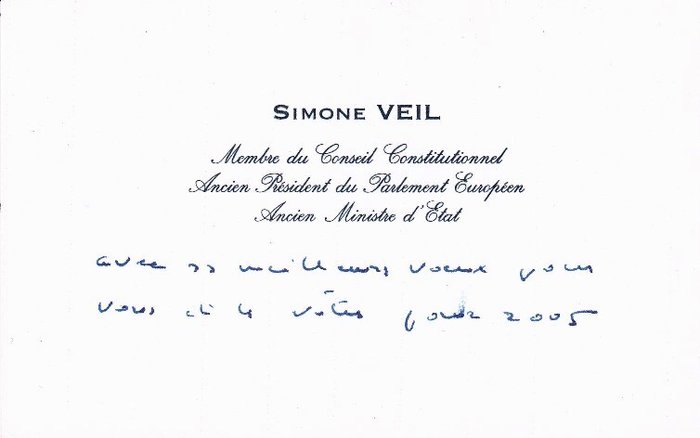 SIMONE VEIL
Membre du Conseil Constitutionnel
Ancien Président du Parlement Européen
Ancien Ministre d'Etat
avec ss meilleurs voeux pour
vous et les vôtres pour 2005